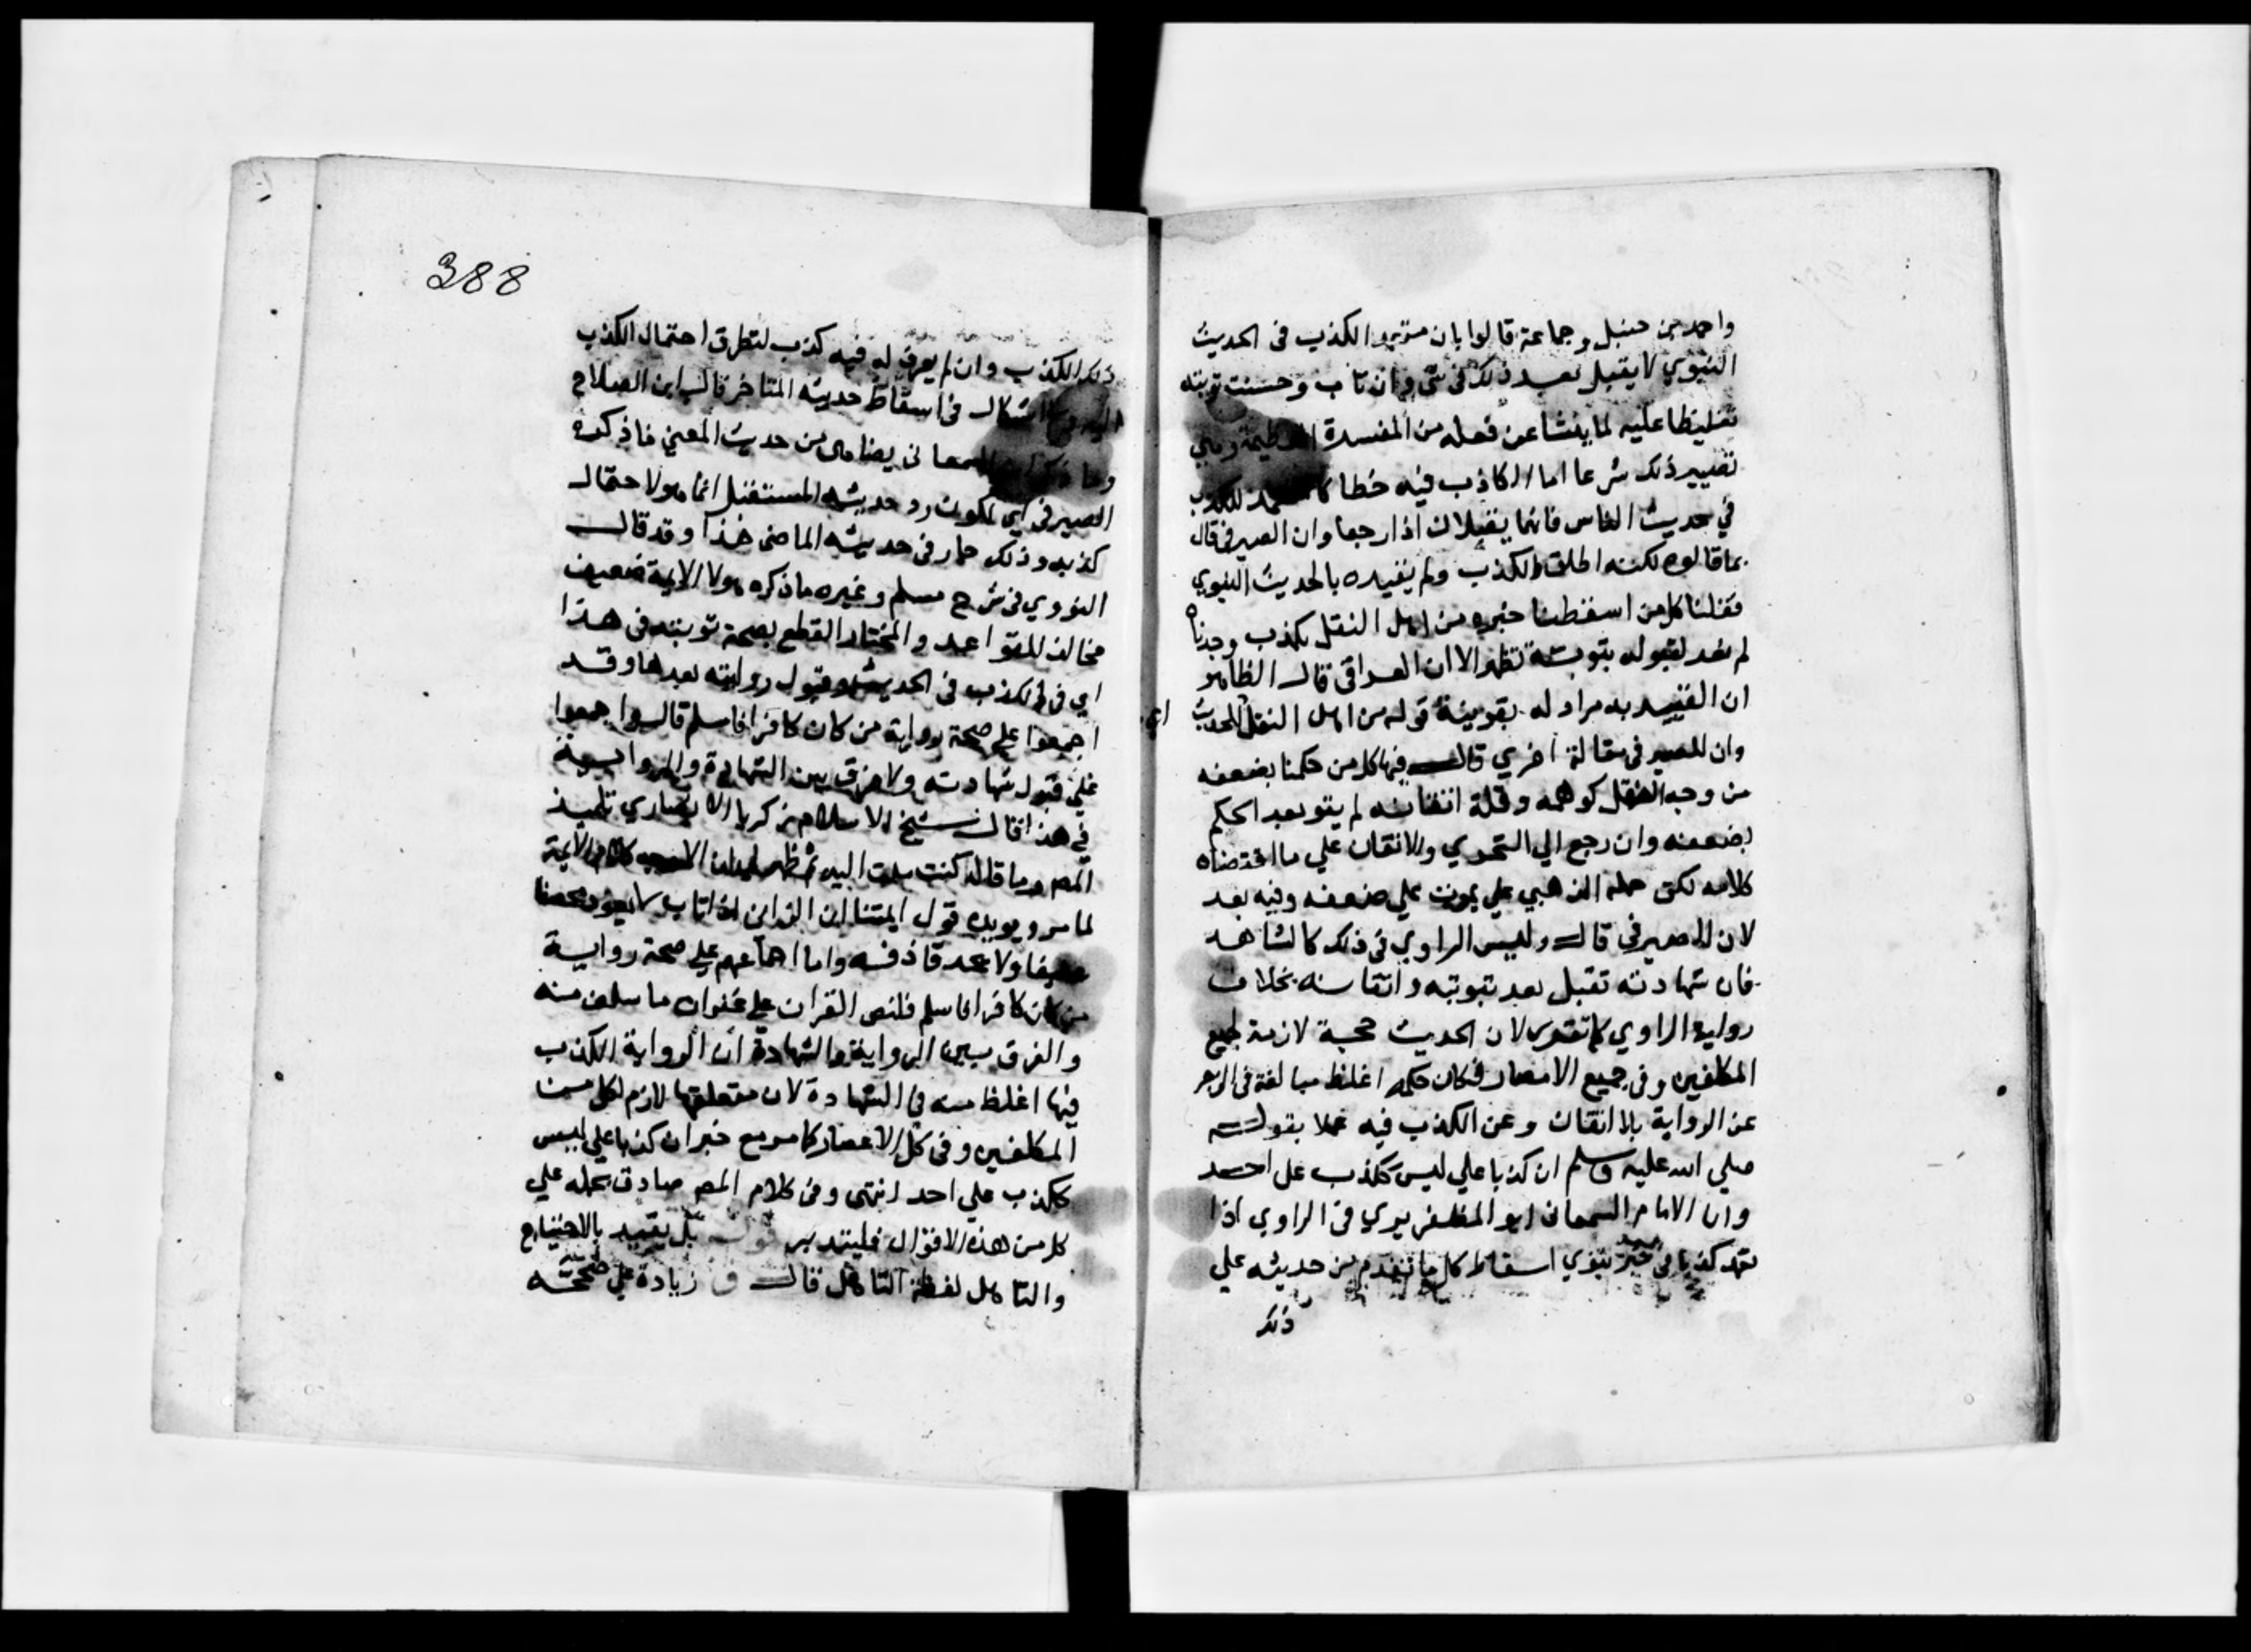 واحمد بن حنبل وجماعة قالوا بان متعمد الكذب في الحديث
النبوي لا يقبل بعد ذلك في شي وان تاب وحسنت توبته
تغليظا عليه لما ينشا عن فعله من المفسدة العظيمة وهي
تصيير ذلك شرعا اما الكاذب فيه خطا للكذب
في حديث الناس فانهما يقبلان اذا رجعا وان الصيرفي قال
بما قالوه لكنه اطلق الكذب ولم يقيده بالحديث النبوي
فقلنا كل من اسقطنا خبره من اهل النقل بكذب وجدناه
لم نعد لقبوله بتوبة تظهر الا ان العراقي قال الظاهر
ان التقييد به مراد له بقرينة قوله من اهل النقل للحديث
اي
وان للصيرفي مقالة اخري قال فيها كل من حكمنا بضعفه
من وجه النقل كوهمه وقلة اتقانه لم يقو بعد الحكم
بضعفه وان رجع الي التحري والاتقان علي ما اقتضاه
كلامه لكن حمله الذهبي علي يموت علي ضعفه وفيه بعد
لان الصيرفي قال وليس الراوي في ذلك كالشاهد
فان شهادته تقبل بعد توبته واتقانه بخلاف
رواية الراوي كما تقرر لان الحديث حجة لازمة لجميع
المكلفين وفي جميع الامصار فكان حكمه اغلظ مبالغة في الزجر
عن الرواية بلا اتقان وعن الكذب فيه عملا بقوله
صلي الله عليه وسلم ان كذبا علي ليس ككذب على احد
وان الامام السمعاني ابو المظفر يري في الراوي اذا
تعمد كذبا في خبر نبوي اسقاط كل ما تقدم من حديثه علي
ذلك
388
ذلك الكذب وان لم يعرف له فيه كذب لتطرق احتمال الكذب
في اسقاط حديثه المتاخر قال ابن الصلاح
السمعاني يضاهي من حديث المعني ما ذكره
الصيرفي اي لكون رد حديثه المستقبل انما هو لاحتمال
كذبه وذلك جار في حديثه الماضي خذا وقد قال
النووي في شرح مسلم وغيره ما ذكره هولا الايمة ضعيف
مخالف للقواعد والمختار القطع بصحة توبته في هذا
اي في الكذب في الحديث وقبول روايته بعدها وقد
اجمعوا علي صحة رواية من كان كافرا فاسلم قال واجمعوا
علي قبول شهادته ولا فرق بين الشهادة والرواية
في هذا قال شيخ الاسلام زكريا الانصاري تلميذ
المص وما قاله كنت ملت اليه ثم ظهر لي ان الاوجه كلام الايمة
لما مر ويويده قول ايمتنا ان الزاني اذا تاب لا يعود محصنا
عفيفا ولا يحد قاذفه واما اجماعهم علي صحة رواية
من كان كافرا فاسلم فلنص القران علي غفران ما سلف منه
والفرق بين الرواية والشهادة ان الرواية الكذب
فيها اغلظ منه في الشهادة لان متعلقها لازم لكل من
المكلفين وفي كل الاعصار كما مر مع خبر ان كذبا علي ليس
ككذب علي احد انتهى وفي كلام المص صادق بحمله علي
كل من هذه الاقوال فليتدبر قوله بل يقيد بالاحتياج
والتاهل لفظة التاهل قال ق زيادة علي صحته